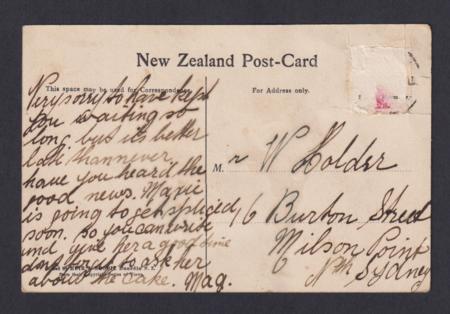 New Zealand Post-Card
This space may be used for Correspondence.
For Address only.
Very sorry to have kept
you waiting so
long but its better
late than never
have you heard the
good news. Marie
is going to get spliced
soon. so you can write
and give her a good time
dont forget to ask her
about the cake. Mag.
M. r W Holder
16 Burton Street
Milson Point
Nth Sydney